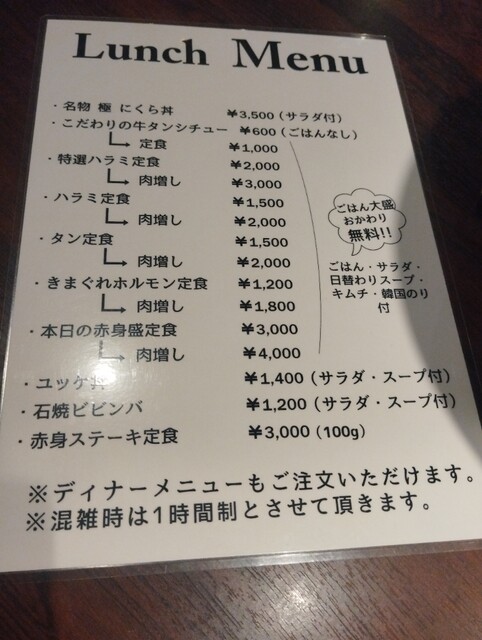 Lunch Menu
・名物 極 にくら丼 ¥3,500（サラダ付）
・こだわりの牛タンシチュー ¥600（ごはんなし）
定食 ¥1,000
・特選ハラミ定食 ¥2,000
肉増し ¥3,000
・ハラミ定食 ¥1,500
肉増し ¥2,000
・タン定食 ¥1,500
肉増し ¥2,000
・きまぐれホルモン定食 ¥1,200
肉増し ¥1,800
・本日の赤身盛定食 ¥3,000
肉増し ¥4,000
ごはん大盛
おかわり
無料!!
ごはん・サラダ・
日替わりスープ・
キムチ・韓国のり
付
・ユッケ丼 ¥1,400（サラダ・スープ付）
・石焼ビビンバ ¥1,200（サラダ・スープ付）
・赤身ステーキ定食 ¥3,000（100g）
※ディナーメニューもご注文いただけます。
※混雑時は1時間制とさせて頂きます。